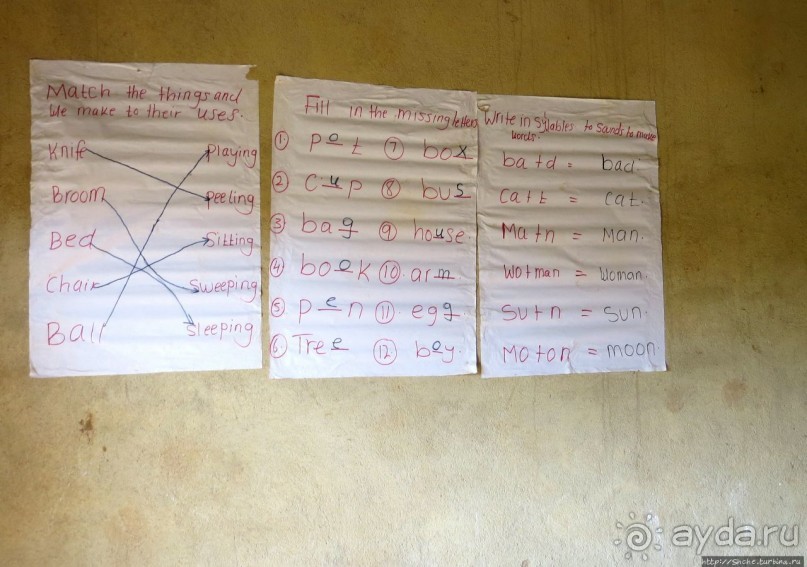 Match the things and
we make to their uses.
Knife Playing
Broom Peeling
Bed Sitting
Chair Sweeping
Ball Sleeping
Fill in the missing letters
1 Pot 7 box
2 Cup 8 bus
3 bag 9 house
4 book 10. arm
5 pen 11. egg
6. Tree 12 boy.
Write in syllables to sands to make
words.
ba+d = bad
Ca+t = cat.
Ma+n = Man.
Wo+man = Woman.
Su+n = Sun.
Mo+on = moon.
ayda.ru
http://Shohe.turbina.ru